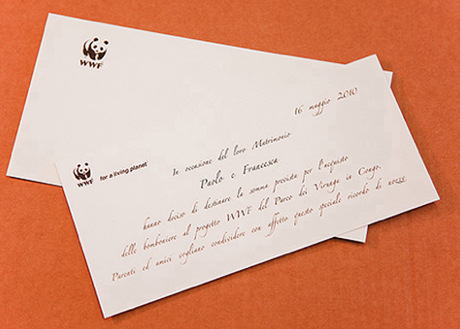 WWF
16 maggio 2010
WWF
for a living planet
In occasione del loro Matrimonio
Paolo e Francesca
hanno deciso di destinare la somma prevista per l'acquisto
delle bomboniere al progetto WWF del Parco dei Virunga in Congo.
Parenti ed amici vogliano condividere con affetto questo speciale ricordo di nozze.